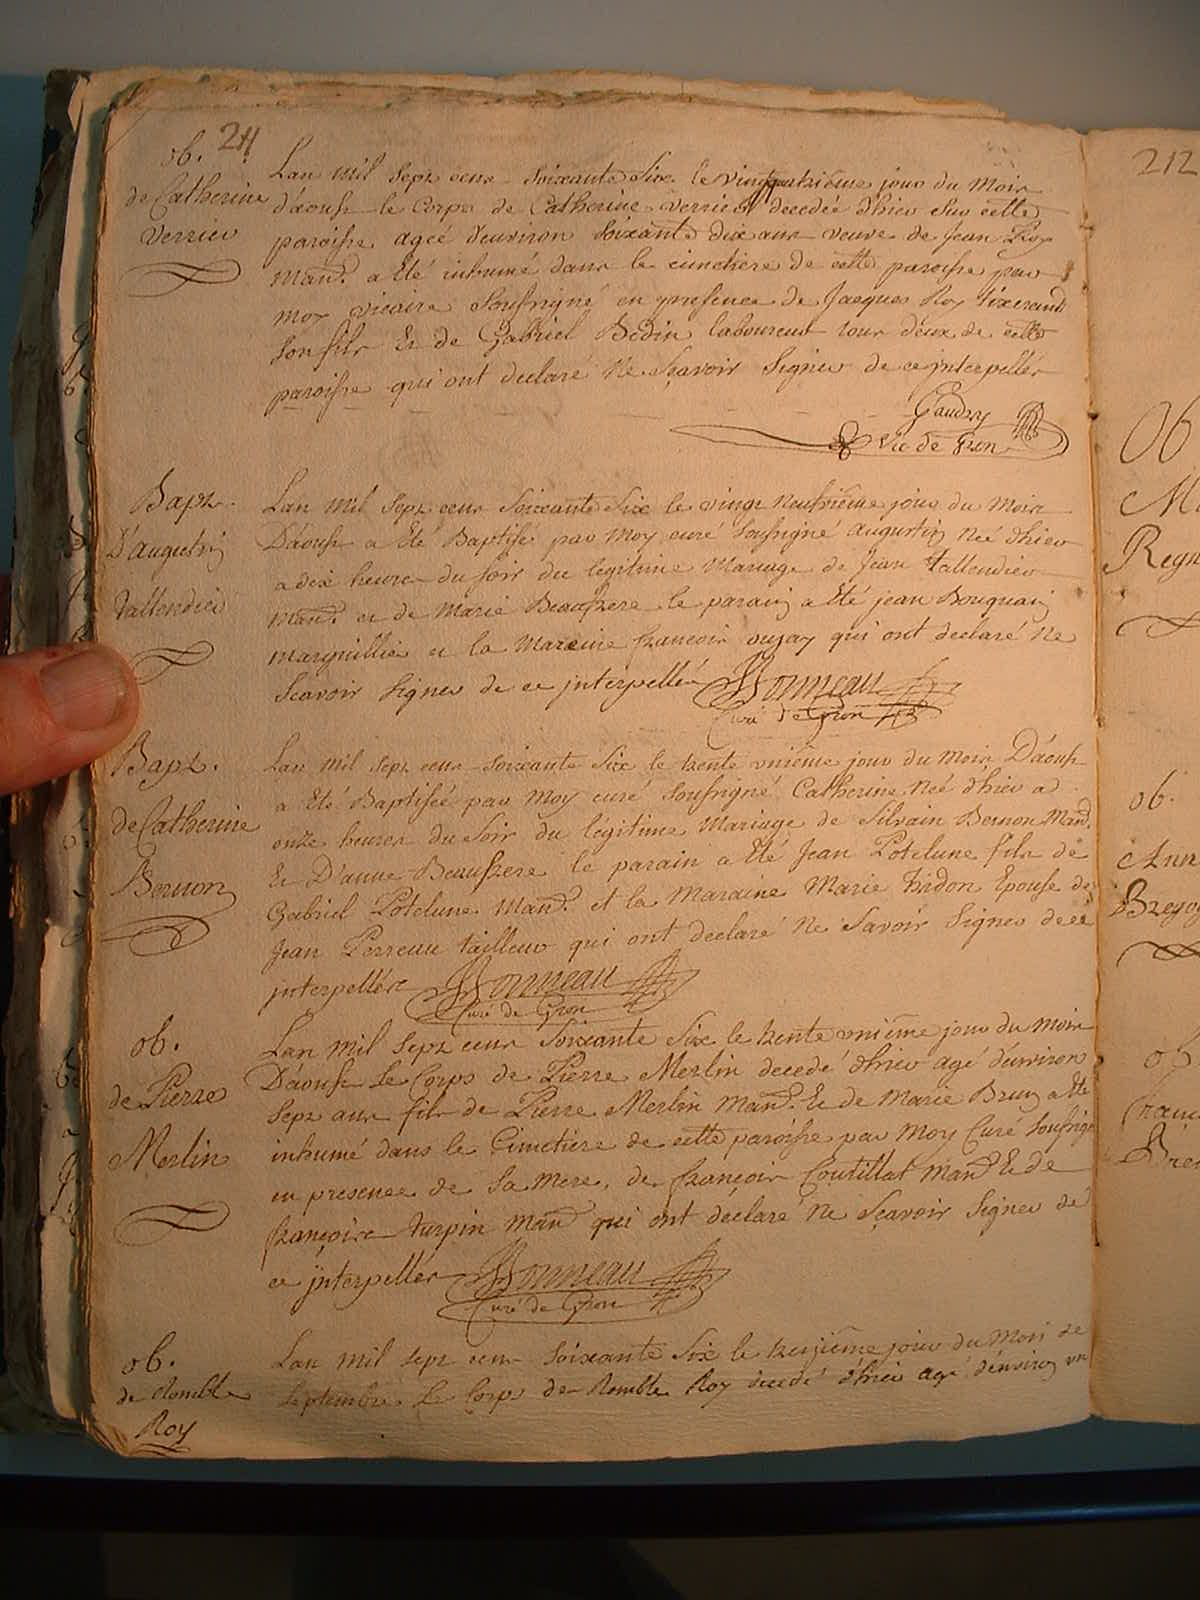 211
ob.
de Catherine
Verrier
Lan mil sept cens soixante Six le vingtquatrième jour du mois
d'aoust le Corps de Catherine Verrier decedée d'hier sur cette
paroisse ageé d'environ soixante dix ans veuve de Jean Roy
Man^d. a Eté inhumé dans le cimetiere de cette paroisse par
moy vicaire soussigné en presence de Jacques Roy tixerand
son fils Et de Gabriel Bedin laboureur tous deux de cette
paroisse qui ont declaré ne sçavoir signer de ce jnterpellés
Gaudry
Vic de Gron
Bapt.
D'augustin
tallendier
Lan mil sept cens soixante Six le vingt neufvième jour du mois
D'aoust a Eté Baptisé par moy curé soussigné augustin neé d'hier
a dix heures du soir du legitime Mariage de Jean tallendier
man^d. et de Marie Beaufrere le parain a Eté jean Bouquain
marguillier et la Maraine françoise qui ont declaré ne
scavoir signer de ce jnterpellés
Bonneau
Curé de Gron
Bapt.
de Catherine
Bernon
Lan mil sept cens soixante Six le trente vnième jour du mois D'aoust
a Eté Baptiseé par moy curé soussigné Catherine neé d'hier a
onze heures du soir du légitime Mariage de Silvain Bernon Man^d.
Et D'anne Beaufrere le parain a Eté Jean Potelune fils de
Gabriel Potelune Man^d. et la Maraine Marie tridon Epouse de
Jean Perreau tailleur qui ont declaré ne savoir signer de ce
jnterpellés
Bonneau
Curé de Gron
ob.
de Pierre
Merlin
Lan mil sept cens soixante Six le trente vnième jour du mois
D'aoust Le Corps de Pierre Merlin decedé d'hier agé d'environ
sept ans fils de Pierre Merlin Man^d. Et de Marie Brun a Eté
inhumé dans le Cimetiere de cette paroisse par moy Curé soussigné
en presence de sa mere, de françois Coutillat man^d Et de
françoise turpin man^d qui ont declaré ne sçavoir signer de
ce jnterpellés
Bonneau
Curé de Gron
ob.
de Romble
Roy
Lan mil sept cens soixante Six le jour du mois de
septembre Le Corps de Romble Roy decedé d'hier agé d'environ vn
212
Ob
Regn
ob.
Ann
ob